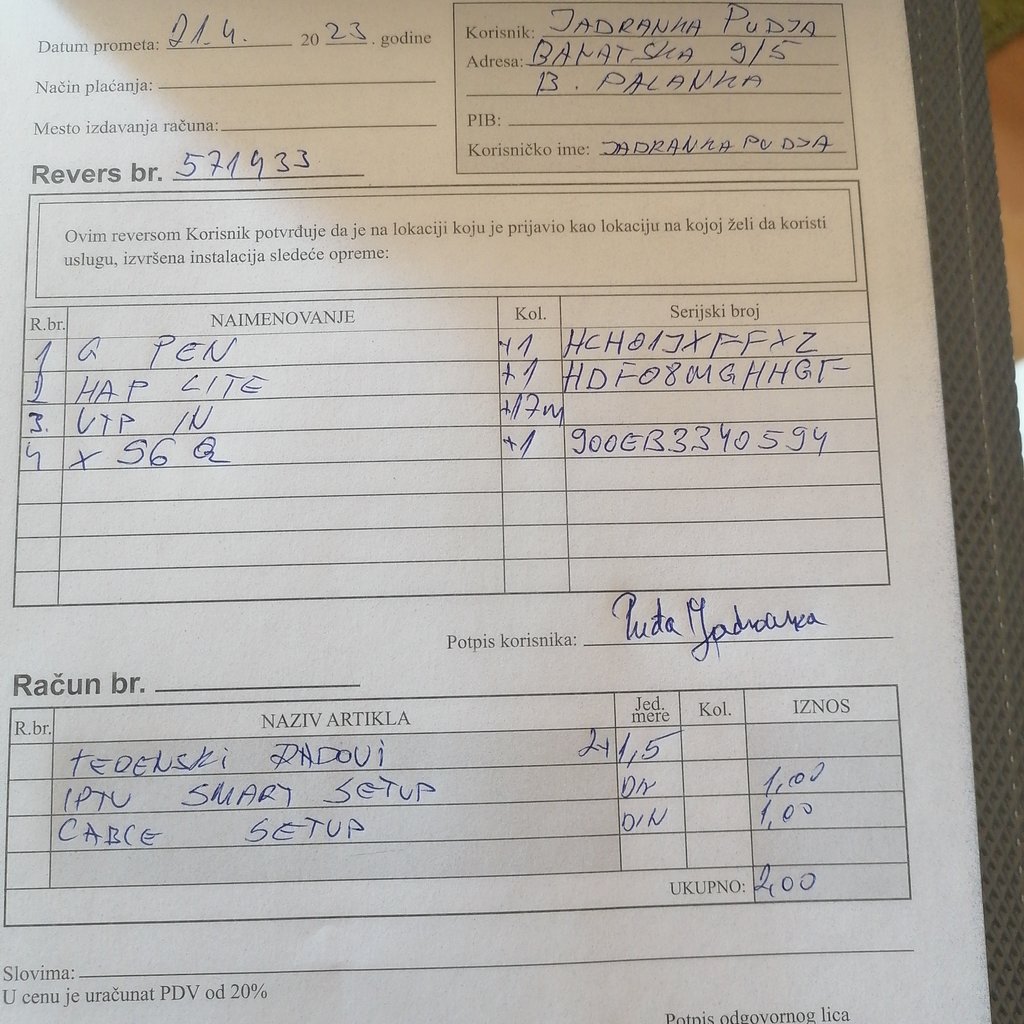 Datum prometa: 21.4. 2023. godine
Način plaćanja:
Mesto izdavanja računa:
Revers br. 571933
Korisnik: JADRANKA PUDJA
Adresa: BANATSKA 9/5
B. PALANKA
PIB:
Korisničko ime: JADRANKA PUDJA
Ovim reversom Korisnik potvrđuje da je na lokaciji koju je prijavio kao lokaciju na kojoj želi da koristi
uslugu, izvršena instalacija sledeće opreme:
R.br. NAIMENOVANJE Kol. Serijski broj
1 G PEN +1
2 HAP LITE +1
3. UTP IN +17m
4 X 96 Q +1 900EB3340594
Potpis korisnika: Puđa Jadranka
Račun br.
R.br. NAZIV ARTIKLA Jed. mere Kol. IZNOS
RADOVI 2+1,5
IPTV SMART SETUP DIN 1,00
CABLE SETUP DIN 1,00
UKUPNO: 2,00
Slovima:
U cenu je uračunat PDV od 20%
Potpis odgovornog lica